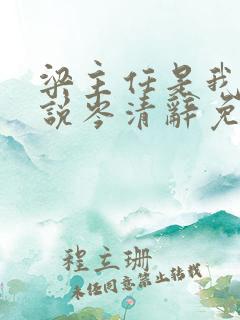 梁主任是我
說岑清辭免
程立珊
未经同意禁止转载